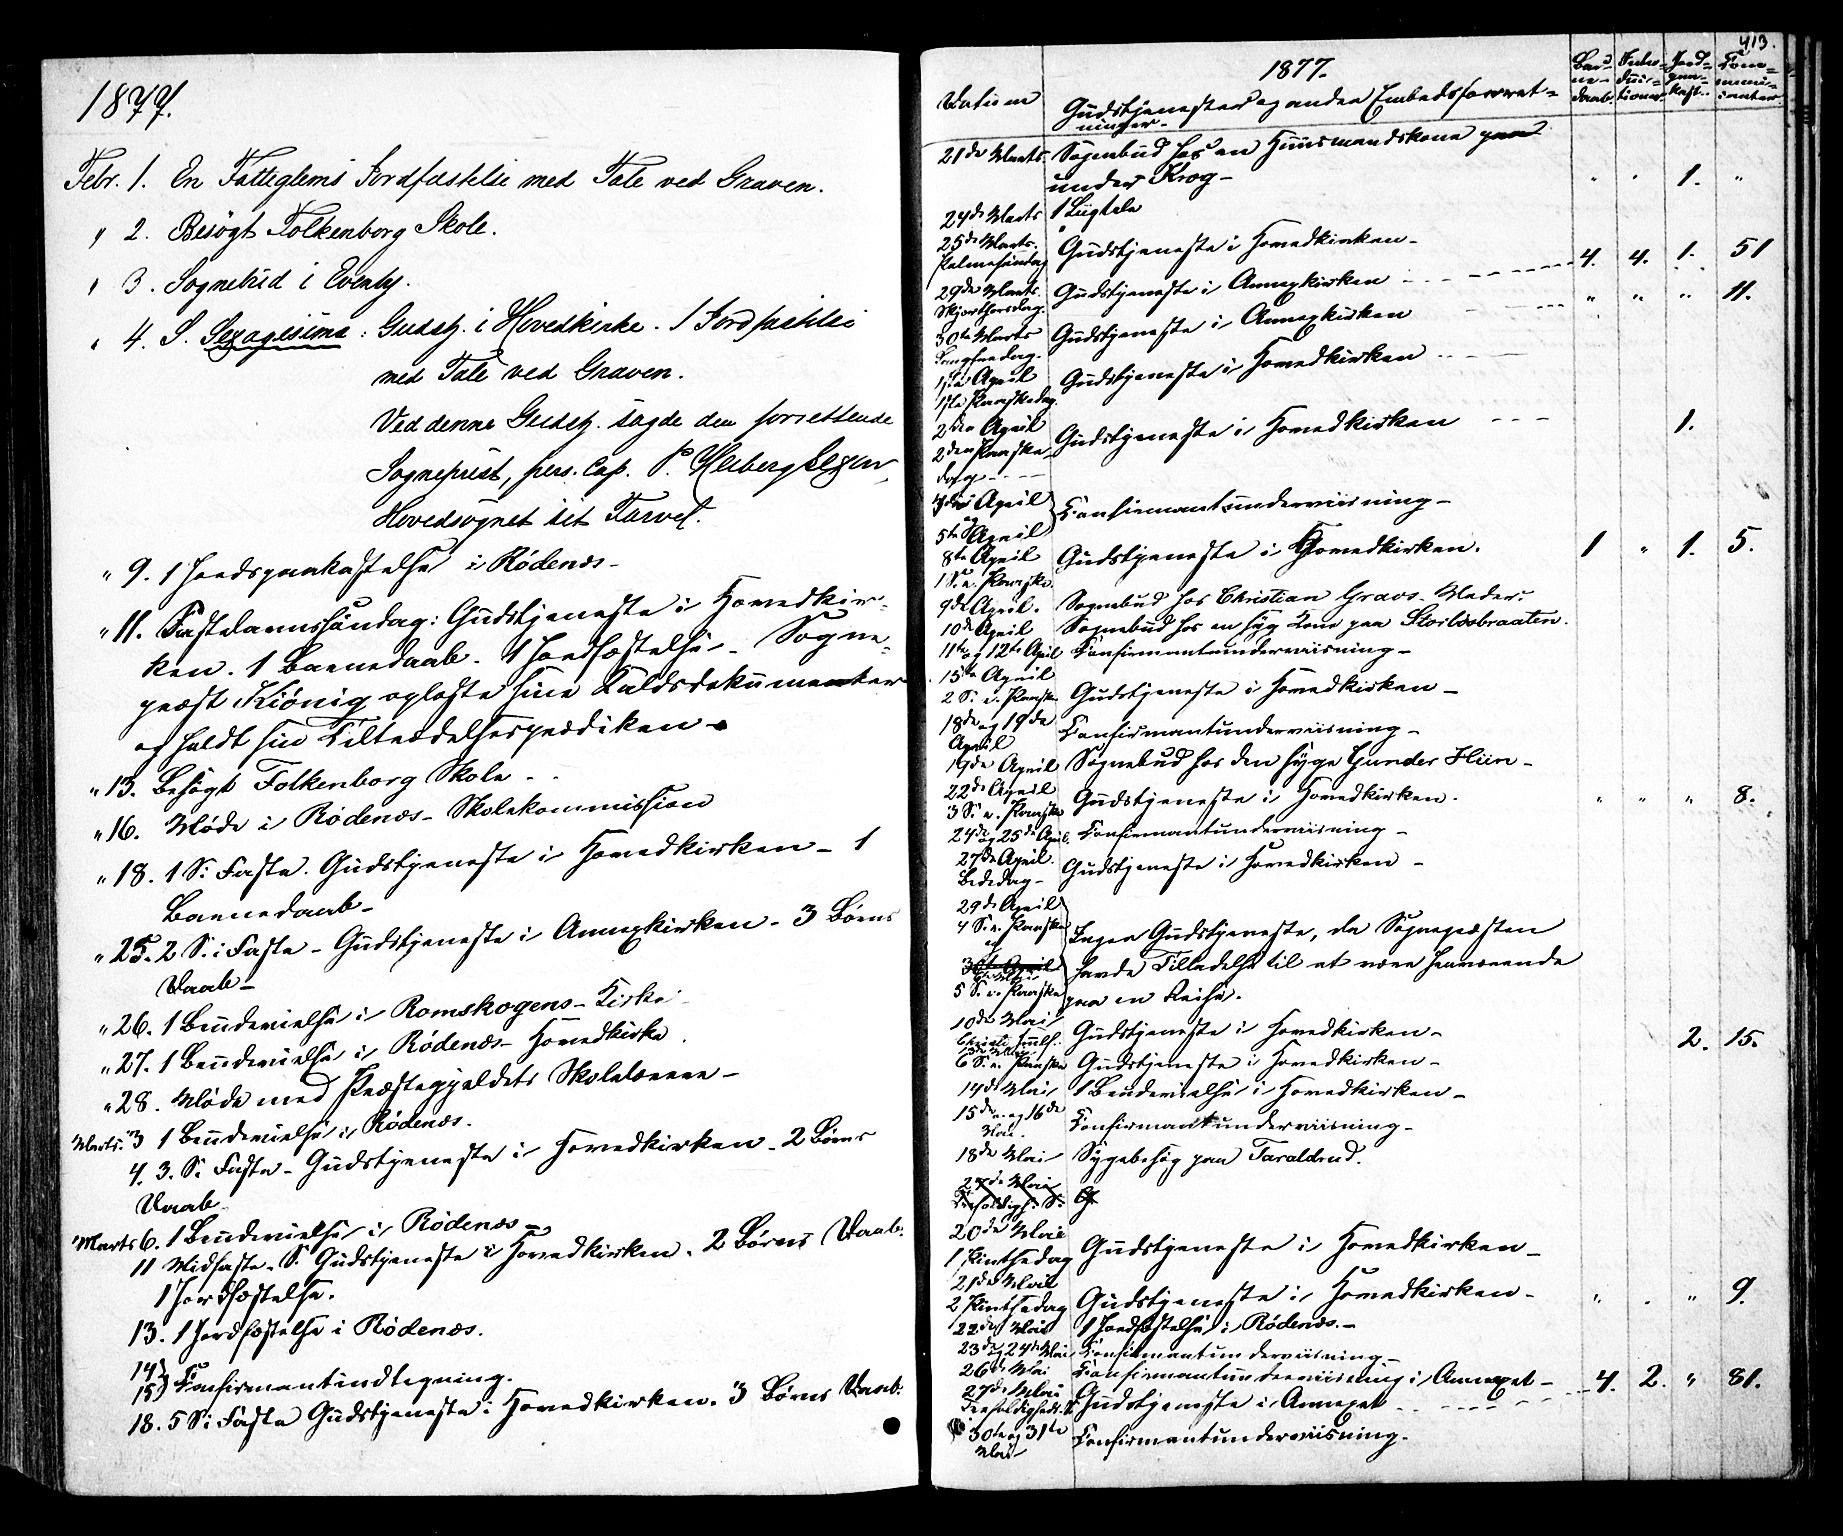 1877.
Febr. 1. En Fatteglems Jordfæstelse med Tale ved Graven.
" 2. Besøgt Folkenborg Skole.
" 3. Sognebud i
" 4. S. Sexagesima: Gudstj. i Hovedkirke. 1 Jordfæstelse
med Tale ved Graven.
Ved denne Gudstj. sagde den forrettende
Sognepræst, pers. Cap. P.
Hovedsognet sit Farvel.
" 9. 1 Jordspaakastelse i Rødenæs-
" 11. Fastelavnssøndag: Gudstjeneste i Hovedkir-
ken. 1 Barnedaab. 1 Jordfæstelse. Sogne-
præst Kiönig oplæste sine Kaldsdokumenter
og holdt sin Tiltrædelsesprædiken.
" 13. Besøgt Folkenborg Skole.
" 16. Møde i Rødenæs-Skolekommission
" 18. 1 S. i Faste. Gudstjeneste i Hovedkirken - 1
Barnedaab-
" 25. 2 S. i Faste - Gudstjeneste i Annexkirken - 3 Børns
Daab-
" 26. 1 Brudevielse i Romskogens-Kirke
" 27. 1 Brudevielse i Rødenæs-Hovedkirke.
" 28. Møde med Præstegjeldets Skolelærere-
Marts. 3 1 Brudevielse i Rødenæs.
4. 3. S. i Faste - Gudstjeneste i Hovedkirken - 2 Børns
Daab-
Marts 6. 1 Brudevielse i Rødenæs-
11 Midfaste-S. Gudstjeneste i Hovedkirken. 2 Børns Daab.
1 Jordfæstelse.
13. 1 Jordfæstelse i Rødenæs.
14
15 Konfirmantindtegning.
18. 5 S. i Faste Gudstjeneste i Hovedkirken. 3 Børns Daab.
413.
1877.
Datum Gudstjenester og anden Embedsforret-
ninger- Bar-
ne-
daab. Intro-
duc-
tioner. Jord-
paa-
kast. Kom-
muni-
canter.
21de Marts. Sognebud hos en Huusmandskone paa
under Krog- " " 1. "
24de Marts 1 Liigtale
25de Marts.
Palmesøndag Gudstjeneste i Hovedkirken- 4. 4. 1. 51
29de Marts.
Skjærthorsdag. Gudstjeneste i Annexkirken " " " 11.
30te Marts
Langfredag. Gudstjeneste i Annexkirken
1ste April
1ste Paaskedag. Gudstjeneste i Hovedkirken
2den April
2den Paaske-
dag Gudstjeneste i Hovedkirken 1.
April
og
5te April Konfirmantundervisning-
8te April
1 S. e. Paaske. Gudstjeneste i Hovedkirken. 1 " 1. 5.
9de April. Sognebud hos Christian Graos-
10de April Sognebud hos en syg Kone paa
11te og 12te April Konfirmantundervisning-
15te April
2 S. e. Paaske Gudstjeneste i Hovedkirken-
18de og 19de
April Konfirmantundervisning-
19de April Sognebud hos den syge Gunder Hiin-
22de April
3 S. e. Paaske Gudstjeneste i Hovedkirken. " " " 8.
24de og 25de April. Konfirmantundervisning-
27de April.
Bededag- Gudstjeneste i Hovedkirken-
29de April
4 S. e. Paaske
og
5 S. e. Paaske Ingen Gudstjeneste, da Sognepræsten
havde Tilladelse til at være fraværende
paa en Reise.
10de Mai
Christi Himlf. Gudstjeneste i Hovedkirken- 2. 15.
6 S. e. Paaske Gudstjeneste i Hovedkirken-
14de Mai 1 Brudevielse i Hovedkirken-
15de og 16de
Mai. Konfirmantundervisning-
18de Mai Sygebesøg paa Taraldrud.
27de Mai
Trefoldigh. S.
20de Mai
1 Pintsedag Gudstjeneste i Hovedkirken-
21de Mai
2 Pintsedag Gudstjeneste i Hovedkirken- " " " 9.
22de Mai 1 Jordfæstelse i Rødenæs.-
23de og 24de Mai Konfirmantundervisning-
26de Mai Konfirmantundervisning i Annexet-
27de Mai
Trefoldigheds S. Gudstjeneste i Annexet 4. 2. " 81.
30te og 31te
Mai Konfirmantundervisning.